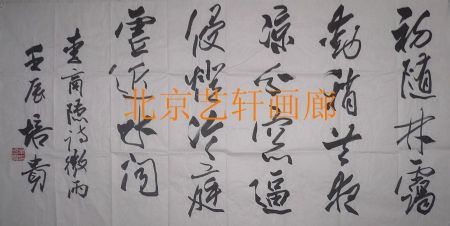 初随林靄
動稍共夜
凉分窗逼
侵燈冷庭
虚近水闻
李商隐诗微雨
壬辰培贵
北京艺轩画廊